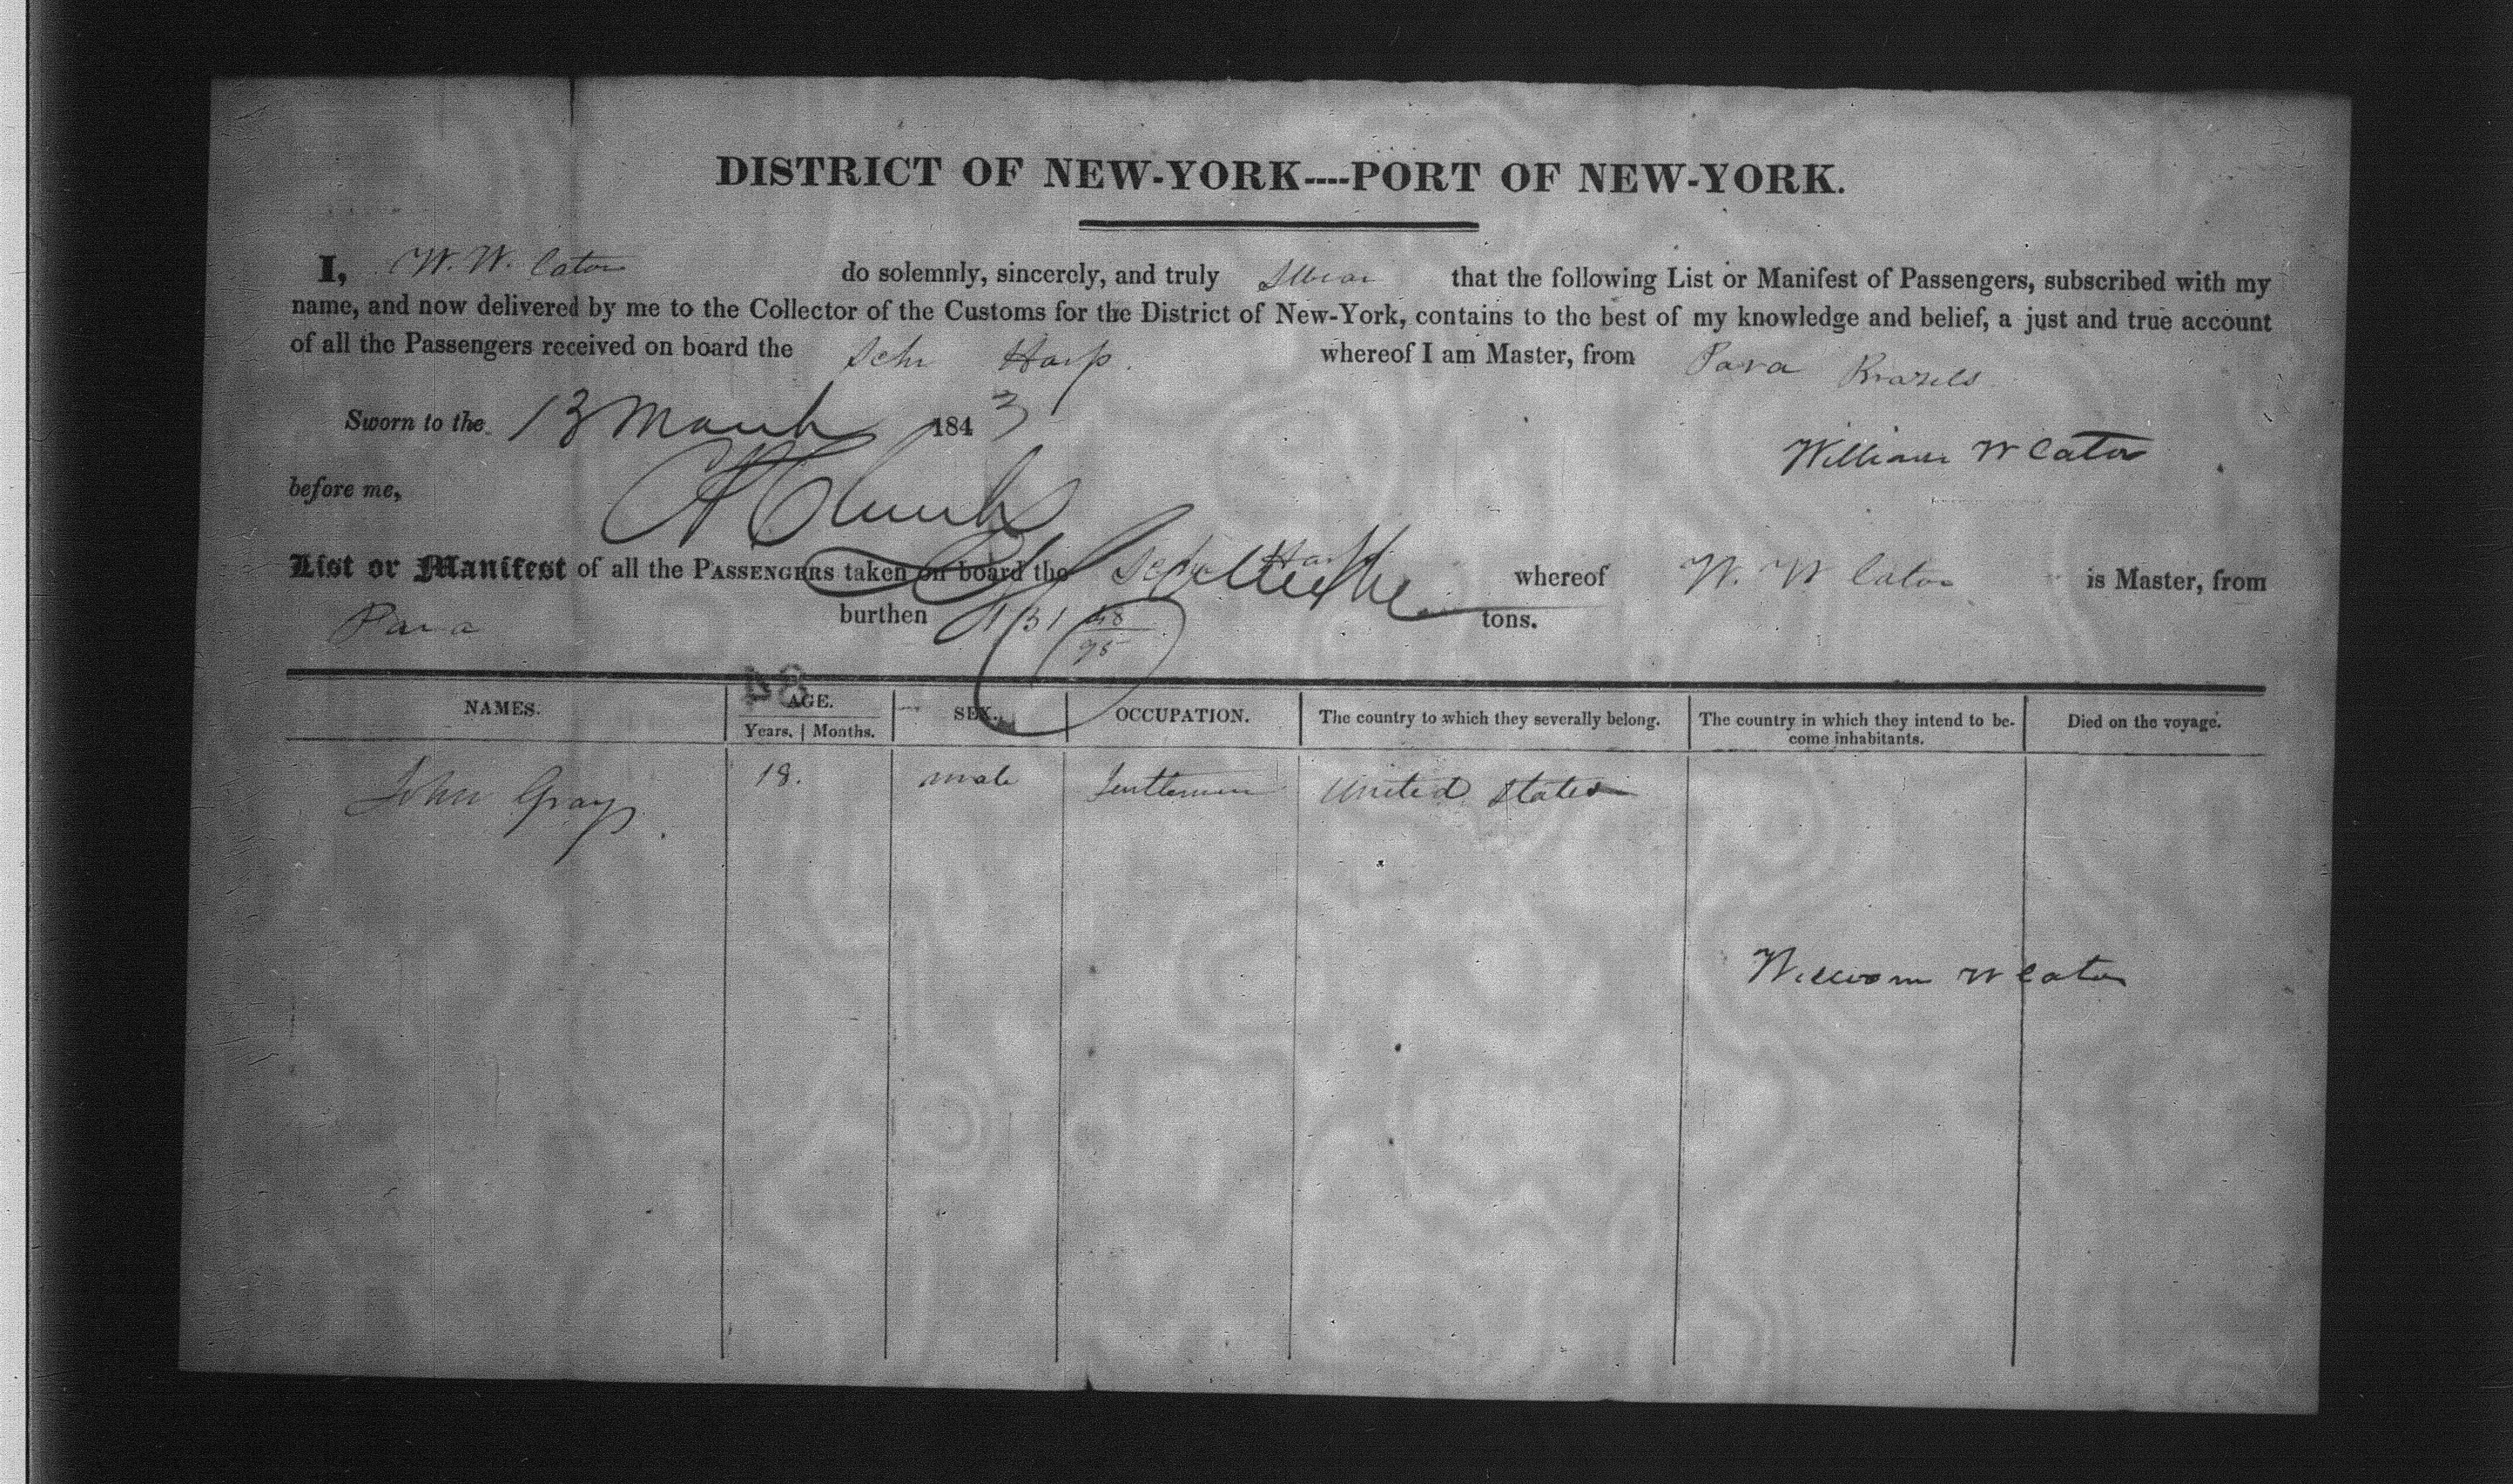 DISTRICT OF NEW-YORK----PORT OF NEW-YORK.
I, W. W. Cator do solemnly, sincerely, and truly Swear that the following List or Manifest of Passengers, subscribed with my
name, and now delivered by me to the Collector of the Customs for the District of New-York, contains to the best of my knowledge and belief, a just and true account
of all the Passengers received on board the Schr Harp. whereof I am Master, from Para Brazils
Sworn to the 13 March 1843
William W Cator
before me,
List or Manifest of all the PASSENGERS taken on board the Schr Harp whereof W. W Cator is Master, from
Para burthen 131 48/95 tons.
NAMES. AGE. SEX. OCCUPATION. The country to which they severally belong. The country in which they intend to be- Died on the voyage.
Years. Months. come inhabitants.
John Gray. 18. male Gentleman United States
William W Cator